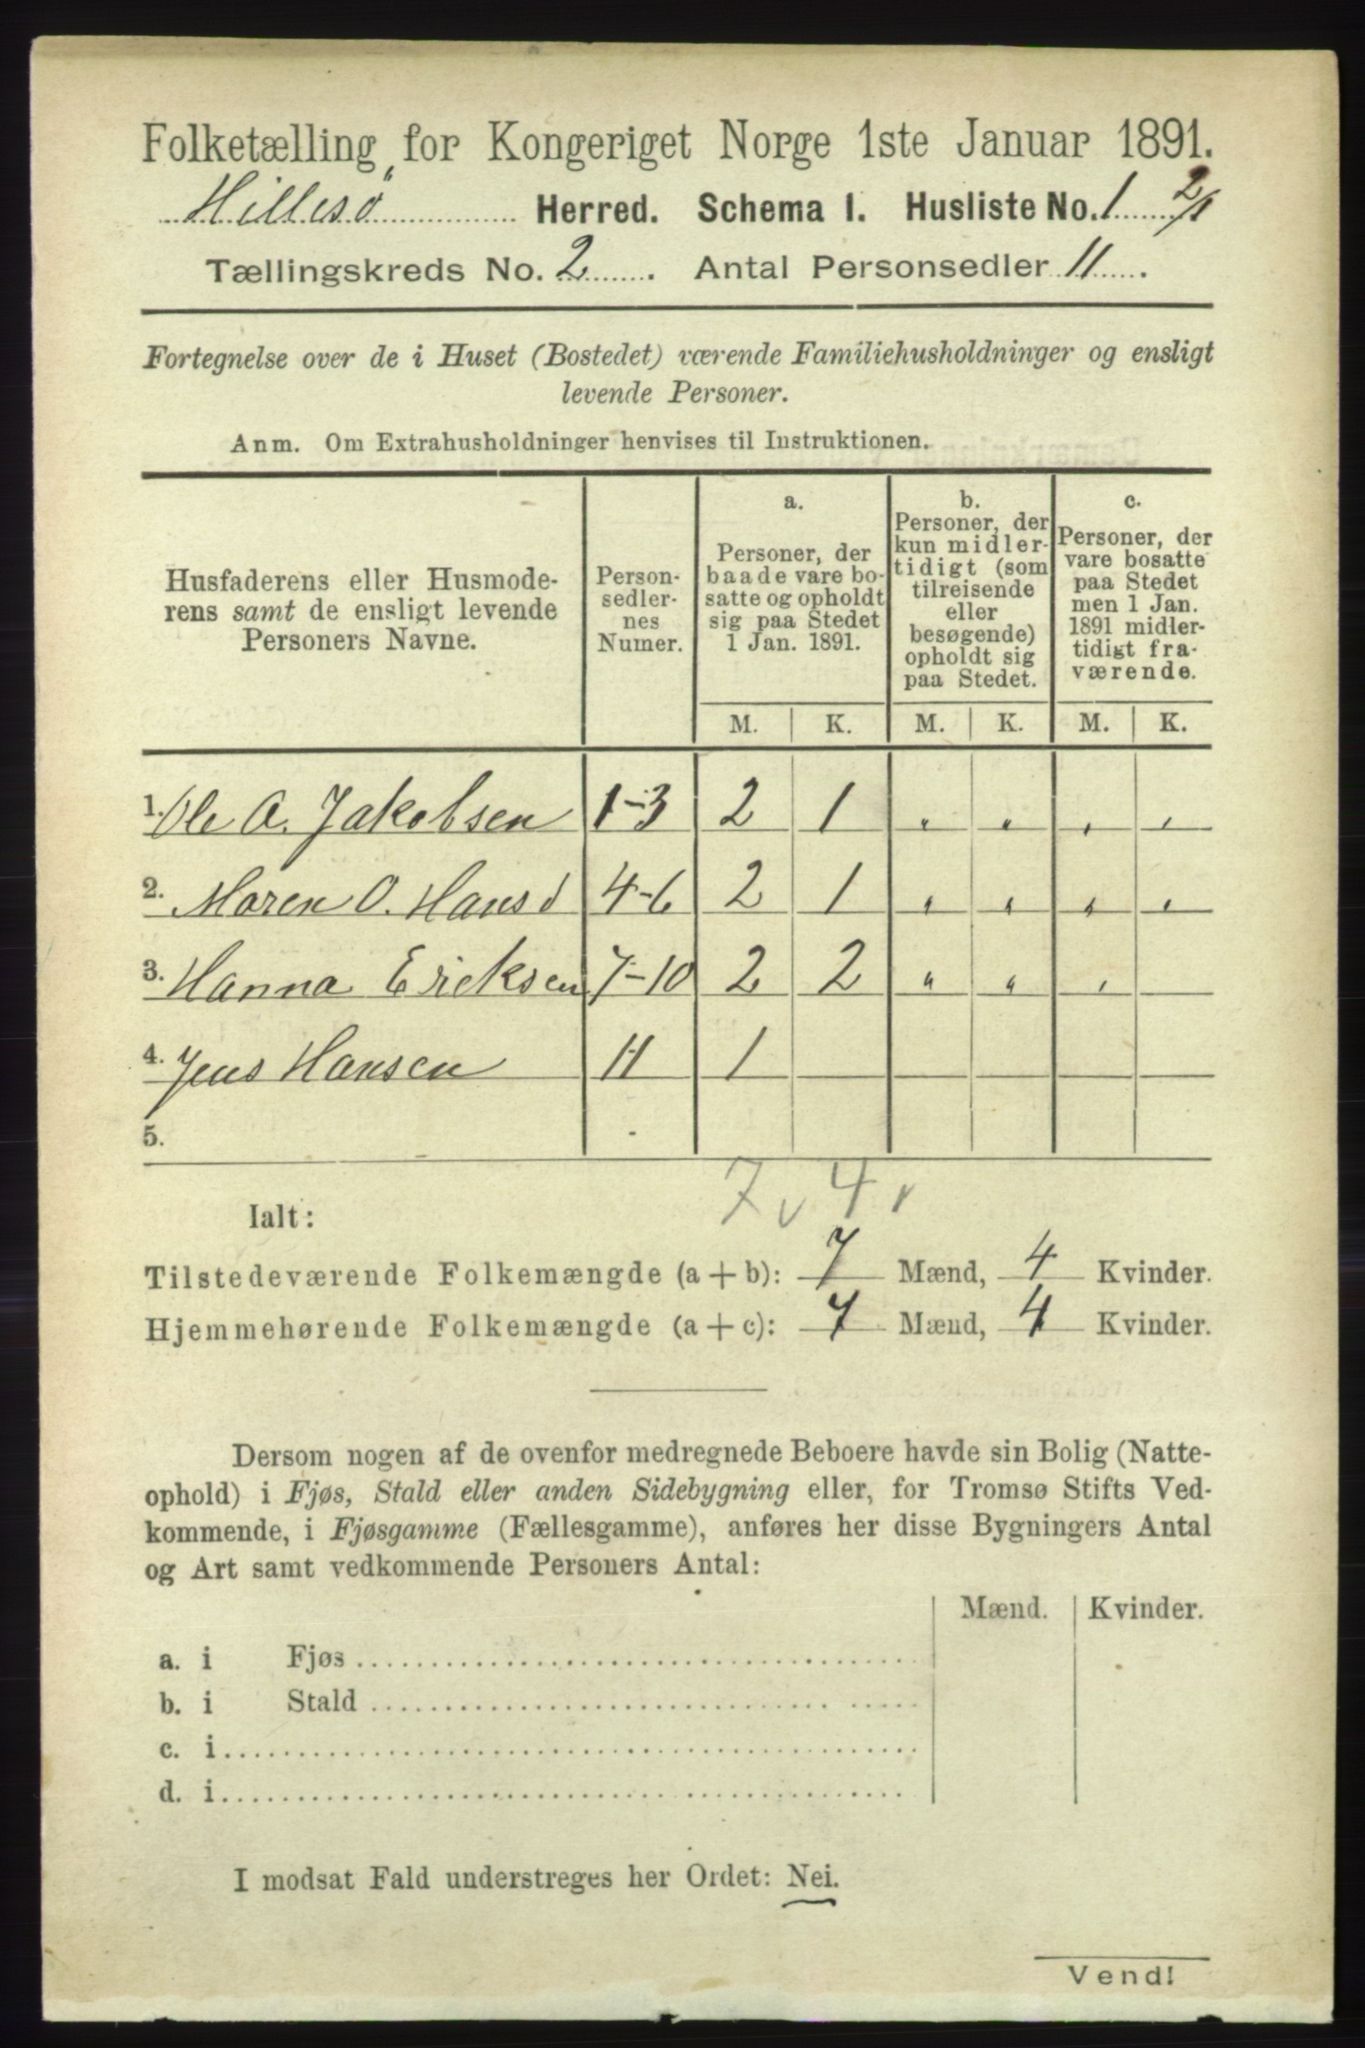 Folketælling for Kongeriget Norge 1ste Januar 1891.
Hillesö Herred. Schema I. Husliste No. 1 2/1
Tællingskreds No. 2. Antal Personsedler 11.
Fortegnelse over de i Huset (Bostedet) værende Familiehusholdninger og ensligt
levende Personer.
Anm. Om Extrahusholdninger henvises til Instruktionen.
Husfaderens eller Husmode-
rens samt de ensligt levende
Personers Navne.
Person-
sedler-
nes
Numer.
a.
Personer, der
baade vare bo-
satte og opholdt
sig paa Stedet
1 Jan. 1891.
b.
Personer, der
kun midler-
tidigt (som
tilreisende
eller
besøgende)
opholdt sig
paa Stedet.
c.
Personer, der
vare bosatte
paa Stedet
men 1 Jan.
1891 midler-
tidigt fra-
værende.
M. K. M. K. M. K.
1. Ole A. Jakobsen 1-3 2 1 " " " "
2. Maren O. Hansd 4-6 2 1 " " " "
3. Hanna Ericksen 7-10 2 2 " " "
4. Jens Hansen 11 1
5.
7 v 4 v
Ialt:
Tilstedeværende Folkemængde (a + b): 7 Mænd, 4 Kvinder.
Hjemmehørende Folkemængde (a + c): 7 Mænd, 4 Kvinder.
Dersom nogen af de ovenfor medregnede Beboere havde sin Bolig (Natte-
ophold) i Fjøs, Stald eller anden Sidebygning eller, for Tromsø Stifts Ved-
kommende, i Fjøsgamme (Fællesgamme), anføres her disse Bygningers Antal
og Art samt vedkommende Personers Antal:
Mænd. Kvinder.
a. i Fjøs
b. i Stald
c. i
d. i
I modsat Fald understreges her Ordet: Nei.
Vend!